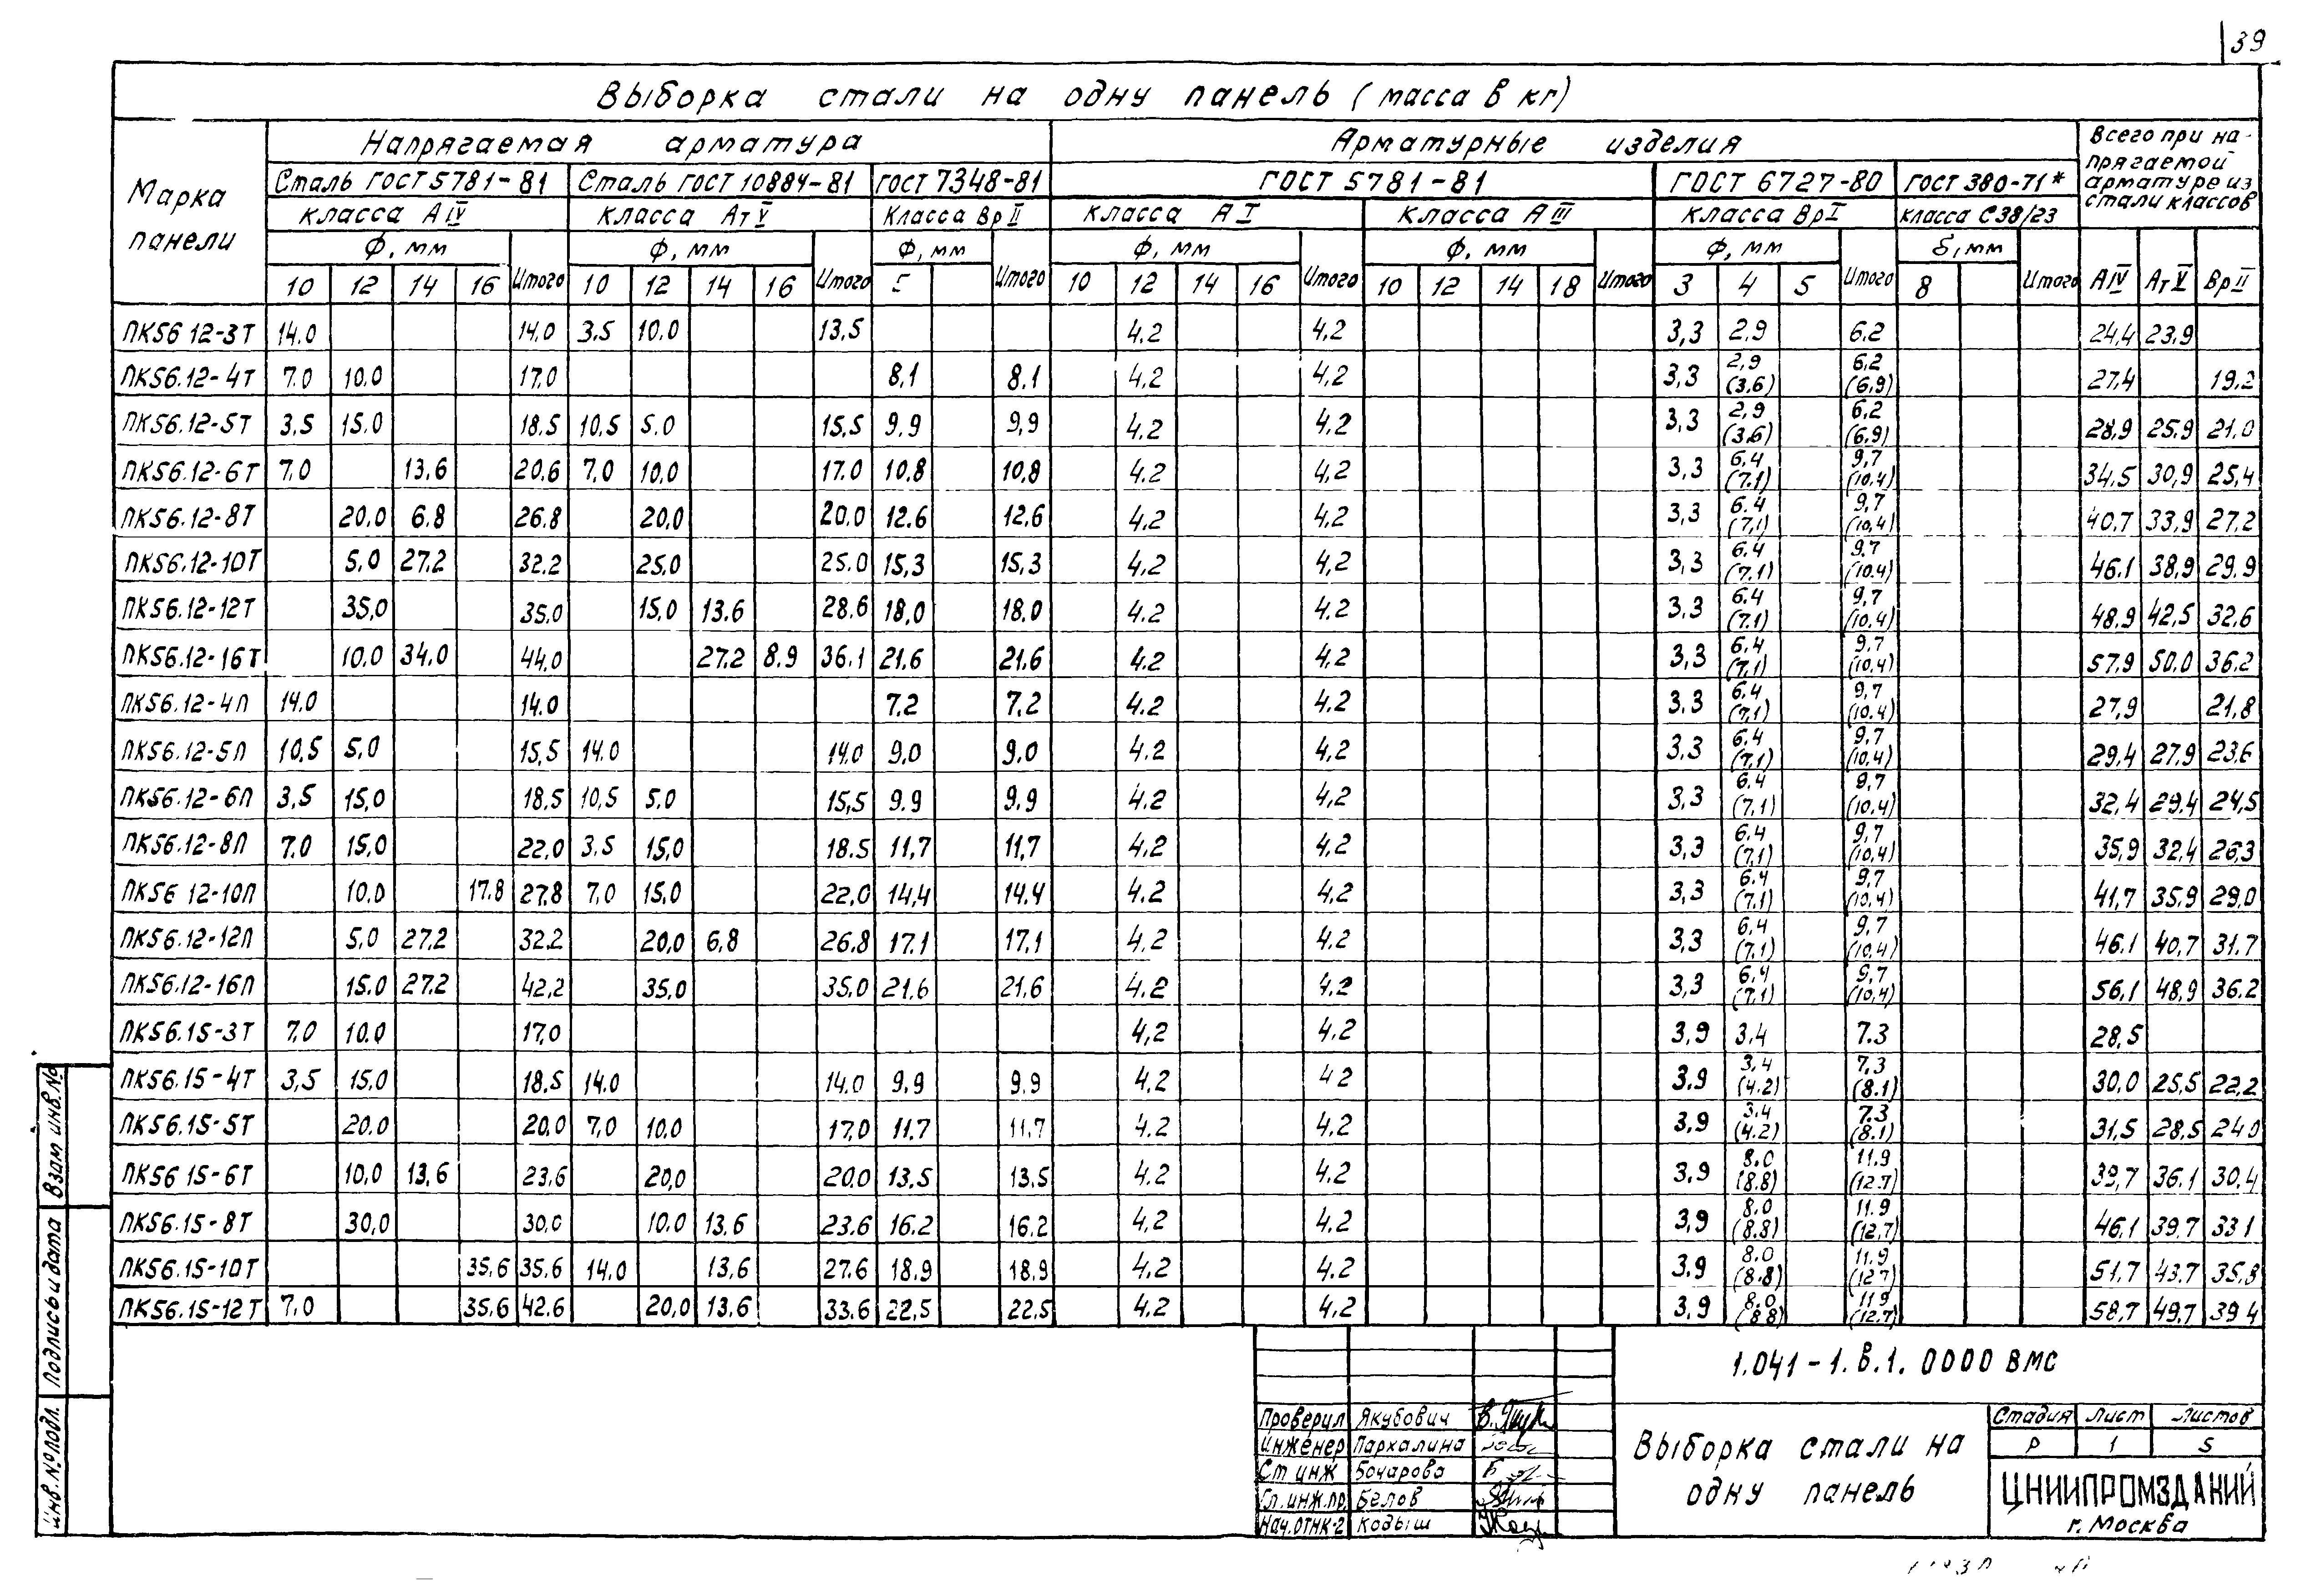 39
Выборка стали на одну панель (масса в кг)
Марка панели
Напрягаемая арматура
Арматурные изделия
Всего при напрягаемой арматуре из стали классов
Сталь ГОСТ 5781-81 Сталь ГОСТ 10884-81 ГОСТ 7348-81 ГОСТ 5781-81 ГОСТ 6727-80 ГОСТ 380-71*
класса АIV класса АтV класса ВрII класса АI класса АIII класса ВрI класса С38/23
Ф, мм Итого Ф, мм Итого Ф, мм Итого Ф, мм Итого Ф, мм Итого Ф, мм Итого δ, мм Итого АIV АтV ВрII
10 12 14 16 10 12 14 16 5 10 12 14 16 10 12 14 18 3 4 5 8
ПК56 12-3Т 14.0 14.0 3.5 10.0 13,5 4.2 4,2 3,3 2,9 6.2 24,4 23,9
ПК56.12-4Т 7.0 10.0 17.0 8,1 8.1 4,2 4,2 3,3 2,9 (3.6) 6,2 (6,9) 27,4 19,2
ПК56.12-5Т 3,5 15.0 18.5 10,5 5.0 15,5 9.9 9,9 4.2 4.2 3,3 2,9 (3.6) 6,2 (6,9) 28,9 25,9 21,0
ПК56.12-6Т 7,0 13,6 20,6 7,0 10,0 17.0 10,8 10,8 4.2 4,2 3,3 6.4 (7.1) 9,7 (10.4) 34,5 30,9 25,4
ПК56.12-8Т 20,0 6.8 26.8 20,0 20,0 12.6 12,6 4,2 4,2 3,3 6.4 (7,1) 9,7 (10,4) 40,7 33,9 27,2
ПК56.12-10Т 5,0 27,2 32.2 25,0 25.0 15,3 15,3 4,2 4,2 3,3 6.4 (7.1) 9,7 (10.4) 46.1 38,9 29,9
ПК56.12-12Т 35,0 35,0 15,0 13.6 28,6 18,0 18.0 4.2 4.2 3,3 6.4 (7.1) 9,7 (10.4) 48,9 42,5 32,6
ПК56.12-16Т 10,0 34,0 44,0 27,2 8.9 36,1 21,6 21,6 4.2 4.2 3,3 6.4 (7,1) 9,7 (10,4) 57,9 50,0 36.2
ПК56.12-4П 14.0 14.0 7.2 7,2 4.2 4.2 3.3 6.4 (7,1) 9,7 (10.4) 27,9 21,8
ПК56.12-5П 10,5 5,0 15,5 14.0 14.0 9,0 9,0 4.2 4,2 3.3 6.4 (7,1) 9,7 (10,4) 29,4 27,9 23,6
ПК56.12-6П 3,5 15,0 18.5 10,5 5.0 15,5 9.9 9.9 4.2 4,2 3.3 6.4 (7,1) 9,7 (10.4) 32,4 29,4 24,5
ПК56.12-8П 7.0 15,0 22,0 3.5 15,0 18.5 11,7 11,7 4.2 4.2 3,3 6.4 (7,1) 9,7 (10,4) 35,9 32,4 26,3
ПК56 12-10П 10.0 17.8 27.8 7,0 15.0 22,0 14,4 14.4 4.2 4,2 3,3 6.4 (7.1) 9,7 (10,4) 41,7 35,9 29,0
ПК56.12-12П 5,0 27,2 32.2 20,0 6,8 26.8 17.1 17,1 4.2 4.2 3,3 6,4 (7.1) 9,7 (10,4) 46.1 40,7 31.7
ПК56.12-16П 15.0 27.2 42,2 35.0 35,0 21.6 21,6 4.2 4.2 3,3 6,4 (7,1) 9,7 (10,4) 56,1 48,9 36.2
ПК56.15-3Т 7,0 10.0 17,0 4,2 4.2 3,9 3,4 7.3 28,5
ПК56.15-4Т 3,5 15,0 18.5 14.0 14.0 9,9 9.9 4.2 4 2 3.9 3,4 (4.2) 7,3 (8.1) 30,0 25,5 22,2
ПК56.15-5Т 20.0 20,0 7,0 10,0 17,0 11.7 11,7 4.2 4.2 3,9 3.4 (4.2) 7.3 (8.1) 31,5 28,5 24 0
ПК56 15-6Т 10,0 13,6 23,6 20,0 20,0 13.5 13,5 4.2 4.2 3,9 8.0 (8.8) 11.9 (12.7) 39,7 36.1 30,4
ПК56.15-8Т 30,0 30,0 10.0 13,6 23.6 16.2 16,2 4,2 4.2 3,9 8.0 (8.8) 11.9 (12,7) 46,1 39.7 33 1
ПК56.15-10Т 35,6 35,6 14,0 13,6 27.6 18.9 18,9 4.2 4.2 3.9 8.0 (8.8) 11.9 (12 7) 51,7 43.7 35,8
ПК56.15-12Т 7.0 35.6 42.6 20,0 13.6 33.6 22,5 22,5 4.2 4,2 3.9 8.0 (8 8) 11 9 (12.7) 58,7 49,7 39 4
1.041-1.в.1.0000 ВМС
Проверил Якубович
Инженер Пархалина
Ст инж Бочарова
Гл.инж.пр. Белов
Нач.ОТНК-2 Кодыш
Выборка стали на
одну панель
Стадия Лист Листов
Р 1 5
ЦНИИПРОМЗДАНИЙ
г. Москва
Взам инв.№
Подпись и дата
Инв. № подл.